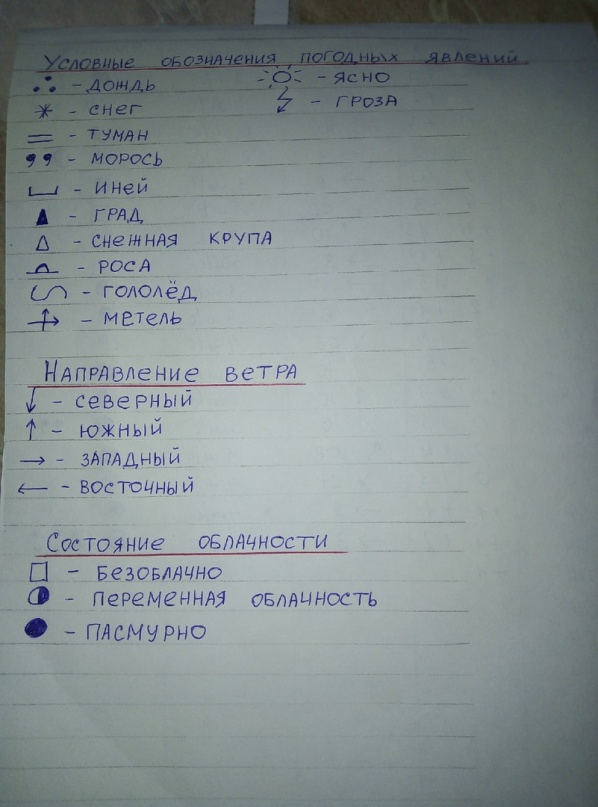 Условные обозначения погодных явлений
- дождь - ясно
- снег - гроза
- туман
- морось
- иней
- град
- снежная крупа
- роса
- гололёд
- метель
Направление ветра
↓ - северный
↑ - южный
→ - западный
← - восточный
Состояние облачности
- безоблачно
- переменная облачность
- пасмурно